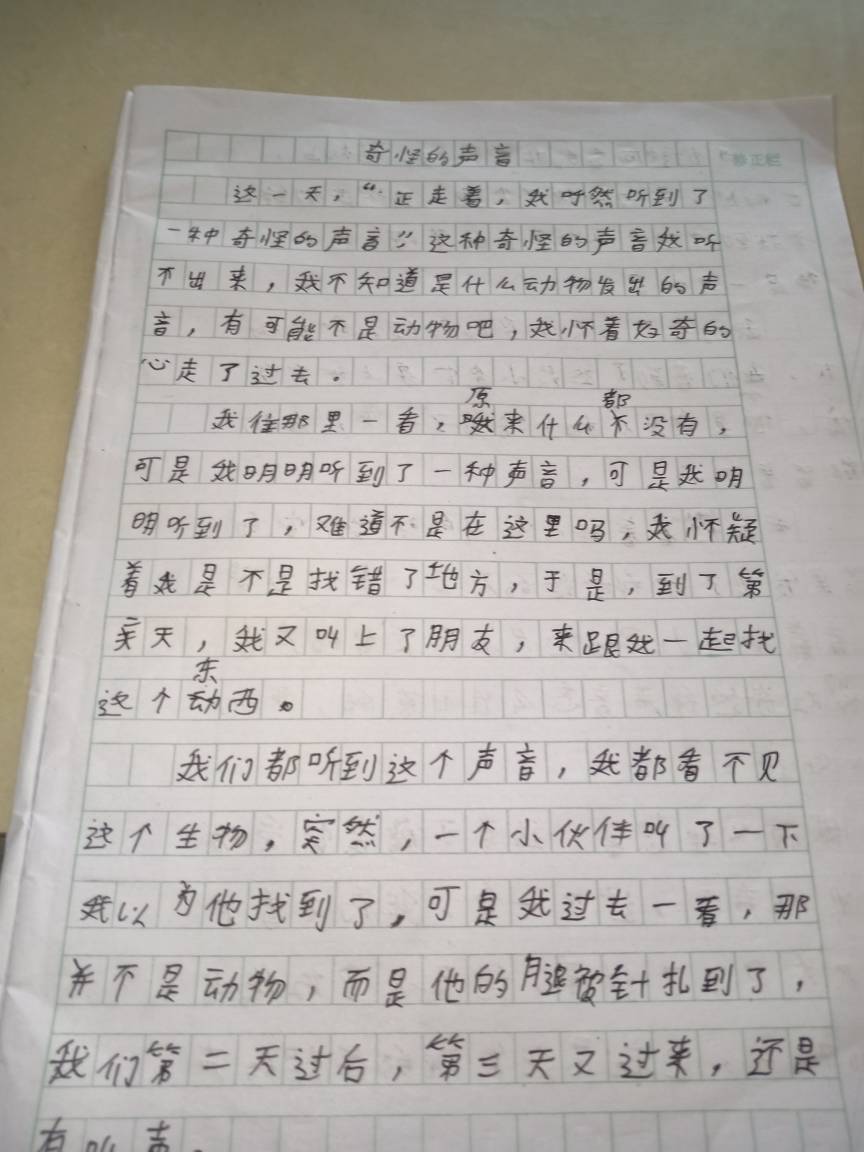 奇怪的声音
修正栏
这一天，“正走着，我呼然听到了
一种奇怪的声音”这种奇怪的声音我听
不出来，我不知道是什么动物发出的声
音，有可能不是动物吧，我怀着好奇的
心走了过去。
我往那里一看，原来什么都没有，
可是我明明听到了一种声音，可是我明
明听到了，难道不是在这里吗，我怀疑
着我是不是找错了地方，于是，到了第
天，我又叫上了朋友，来跟我一起找
这个东西。
我们都听到这个声音，我都看不见
这个生物，突然，一个小伙伴叫了一下
我以为他找到了，可是我过去一看，那
并不是动物，而是他的腿被针扎到了，
我们第二天过后，第三天又过来，还是
有叫声。